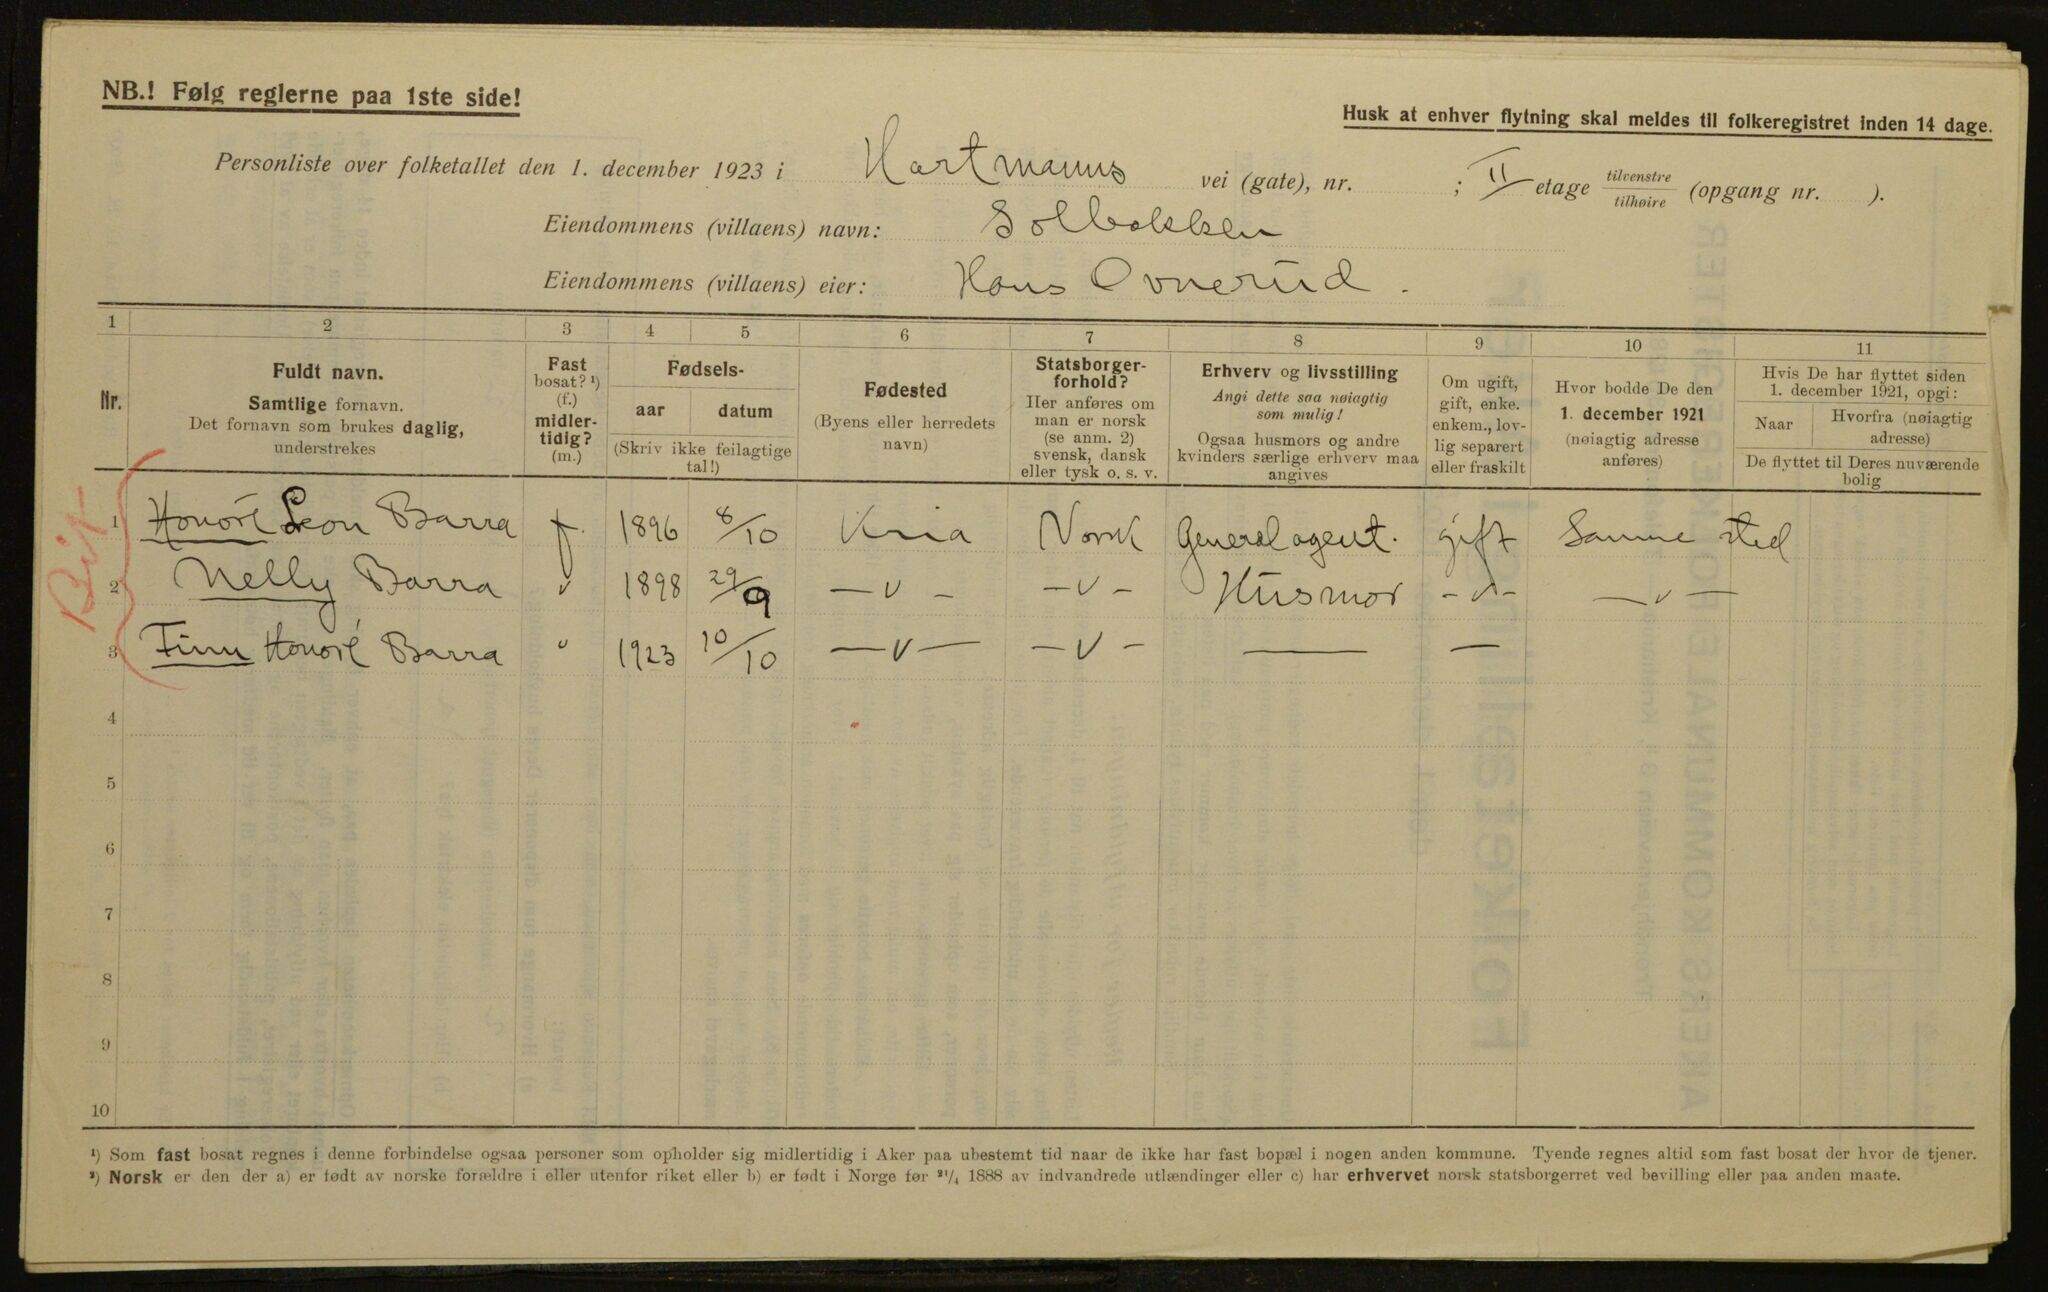 NB.! Følg reglerne paa 1ste side!
Husk at enhver flytning skal meldes til folkeregistret inden 14 dage.
Personliste over folketallet den 1. december 1923 i Hartmanns vei (gate), nr. ; II etage tilvenstre tilhøire (opgang nr. ).
Eiendommens (villaens) navn: Solbakken
Eiendommens (villaens) eier: Hans Ovnerud.
1 2 3 4 5 6 7 8 9 10 11
Nr.
Fuldt navn.
Samtlige fornavn.
Det fornavn som brukes daglig,
understrekes
Fast
bosat? ¹)
(f.)
midler-
tidig?
(m.)
Fødsels-
aar datum
(Skriv ikke feilagtige
tal!)
Fødested
(Byens eller herredets
navn)
Statsborger-
forhold?
Her anføres om
man er norsk
(se anm. 2)
svensk, dansk
eller tysk o. s. v.
Erhverv og livsstilling
Angi dette saa nøiagtig
som mulig!
Ogsaa husmors og andre
kvinders særlige erhverv maa
angives
Om ugift,
gift, enke.
enkem., lov-
lig separert
eller fraskilt
Hvor bodde De den
1. december 1921
(nøiagtig adresse
anføres)
Hvis De har flyttet siden
1. december 1921, opgi:
Naar Hvorfra (nøiagtig
adresse)
De flyttet til Deres nuværende
bolig
1 Honoré Leon Barra f. 1896 8/10 Kria Norsk Generalagent. gift Samme sted
2 Nelly Barra " 1898 29/9 — " — — " — Husmor — " — — " —
3 Finn Honoré Barra " 1923 10/10 — " — — " — — —
4
5
6
7
8
9
10
¹) Som fast bosat regnes i denne forbindelse ogsaa personer som opholder sig midlertidig i Aker paa ubestemt tid naar de ikke har fast bopæl i nogen anden kommune. Tyende regnes altid som fast bosat der hvor de tjener.
²) Norsk er den der a) er født av norske forældre i eller utenfor riket eller b) er født i Norge før ²¹/₄ 1888 av indvandrede utlændinger eller c) har erhvervet norsk statsborgerret ved bevilling eller paa anden maate.